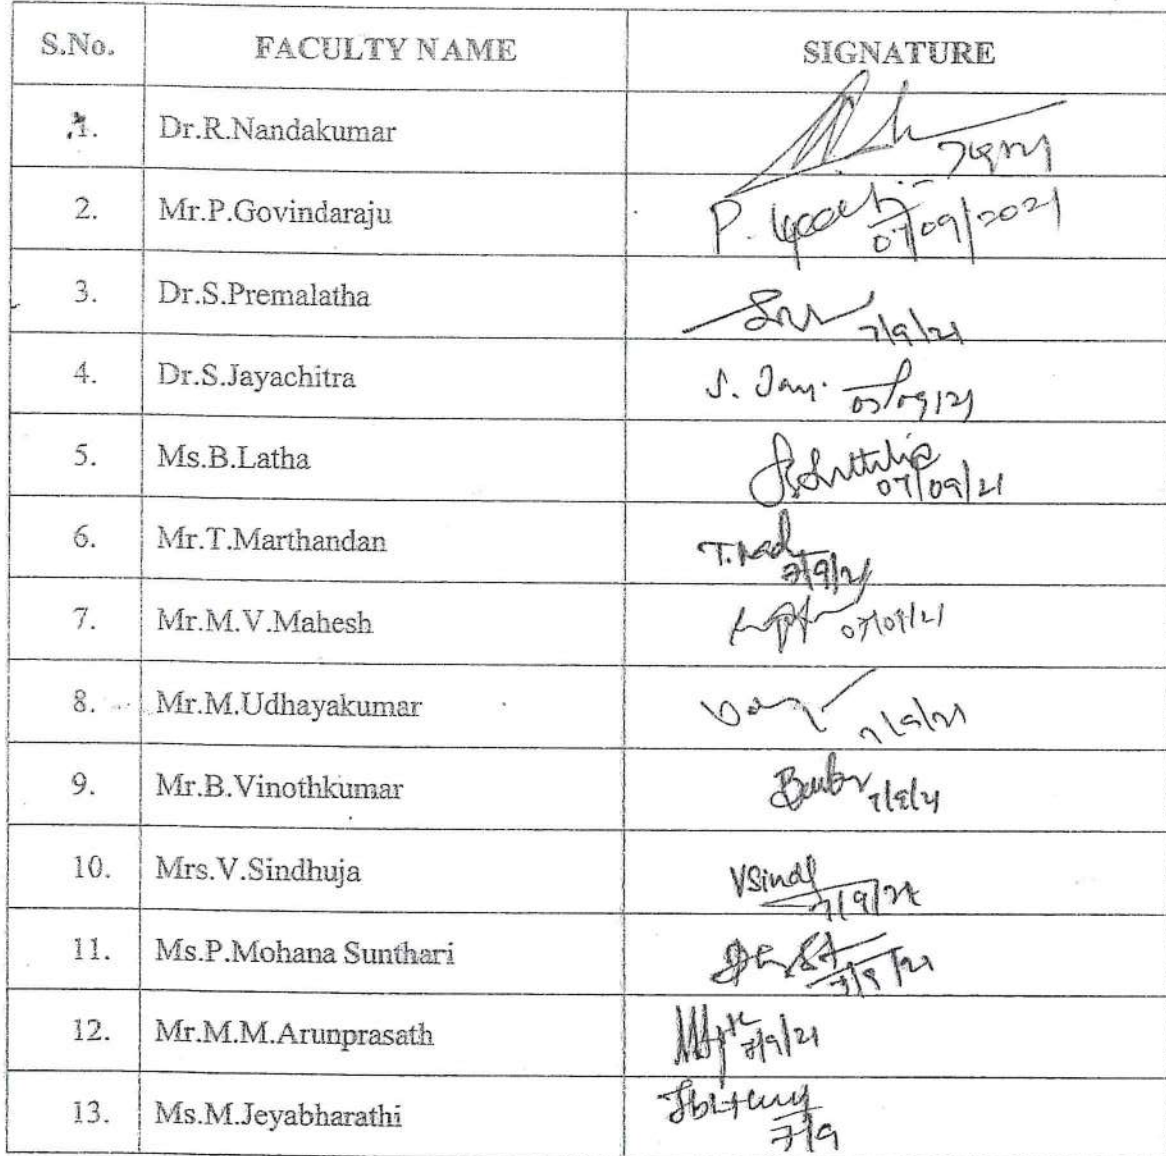 S.No. FACULTY NAME SIGNATURE
1. Dr.R.Nandakumar 7/9/21
2. Mr.P.Govindaraju P. 07/09/2021
3. Dr.S.Premalatha 7/9/21
4. Dr.S.Jayachitra S. Jay. 07/09/21
5. Ms.B.Latha 07/09/21
6. Mr.T.Marthandan 7/9/21
7. Mr.M.V.Mahesh 07/09/21
8. Mr.M.Udhayakumar 7/9/21
9. Mr.B.Vinothkumar 7/9/21
10. Mrs.V.Sindhuja VSindh 7/9/21
11. Ms.P.Mohana Sunthari 7/9/21
12. Mr.M.M.Arunprasath 7/9/21
13. Ms.M.Jeyabharathi 7/9